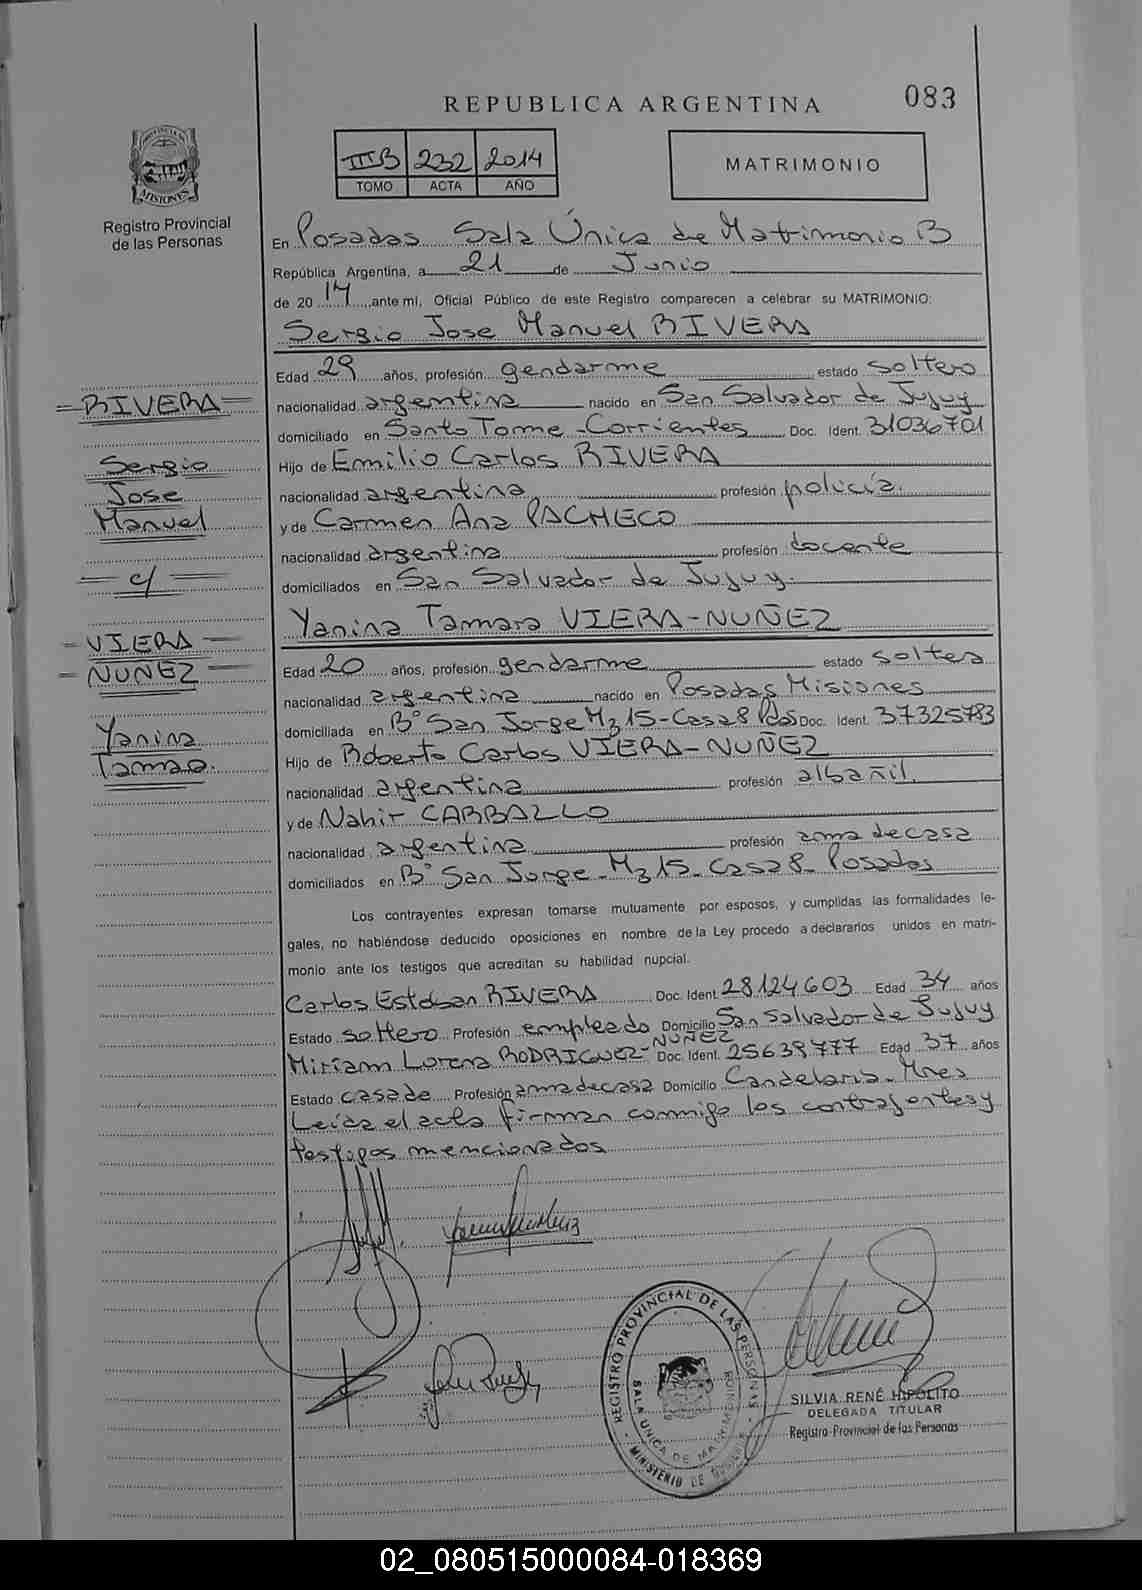 083
REPUBLICA ARGENTINA
IIIB 232 2014
TOMO ACTA AÑO
MATRIMONIO
PROVINCIA DE MISIONES
Registro Provincial
de las Personas
En Posadas Sala Única de Matrimonio B
República Argentina, a 21 de Junio
de 20 14 ante mi, Oficial Público de este Registro comparecen a celebrar su MATRIMONIO:
Sergio Jose Manuel RIVERA
Edad 29 años, profesión gendarme estado soltero
nacionalidad argentina nacido en San Salvador de Jujuy
domiciliado en Santo Tome - Corrientes Doc. Ident. 31036701
Hijo de Emilio Carlos RIVERA
nacionalidad argentina profesión policía.
y de Carmen Ana PACHECO
nacionalidad argentina profesión docente
domiciliados en San Salvador de Jujuy.
Yanina Tamara VIERA-NUÑEZ
Edad 20 años, profesión gendarme estado soltera
nacionalidad argentina nacido en Posadas Misiones
domiciliada en B° San Jorge Mz 15 - Casa 8 Pdas Doc. Ident. 37325783
Hijo de Roberto Carlos VIERA-NUÑEZ
nacionalidad argentina profesión albañil.
y de Nahir CARBALLO
nacionalidad argentina profesión ama de casa
domiciliados en B° San Jorge - Mz 15 - Casa 8 - Posadas
Los contrayentes expresan tomarse mutuamente por esposos, y cumplidas las formalidades le-
gales, no habiéndose deducido oposiciones en nombre de la Ley procedo a declararlos unidos en matri-
monio ante los testigos que acreditan su habilidad nupcial.
Carlos Esteban RIVERA Doc. Ident. 28124603 Edad 34 años
Estado soltero Profesión empleado Domicilio San Salvador de Jujuy
Miriam Lorena RODRIGUEZ-NUÑEZ Doc. Ident. 25639777 Edad 37 años
Estado casada Profesión ama de casa Domicilio Candelaria - Mnes
Leída el acta firman conmigo los contrayentes y
testigos mencionados
= RIVERA =
Sergio
Jose
Manuel
c/
= VIERA
= NUÑEZ
Yanina
Tamara.
REGISTRO PROVINCIAL DE LAS PERSONAS
SALA UNICA DE MATRIMONIO
MINISTERIO DE
SILVIA RENÉ HIPOLITO
DELEGADA TITULAR
Registro Provincial de las Personas
02_080515000084-018369